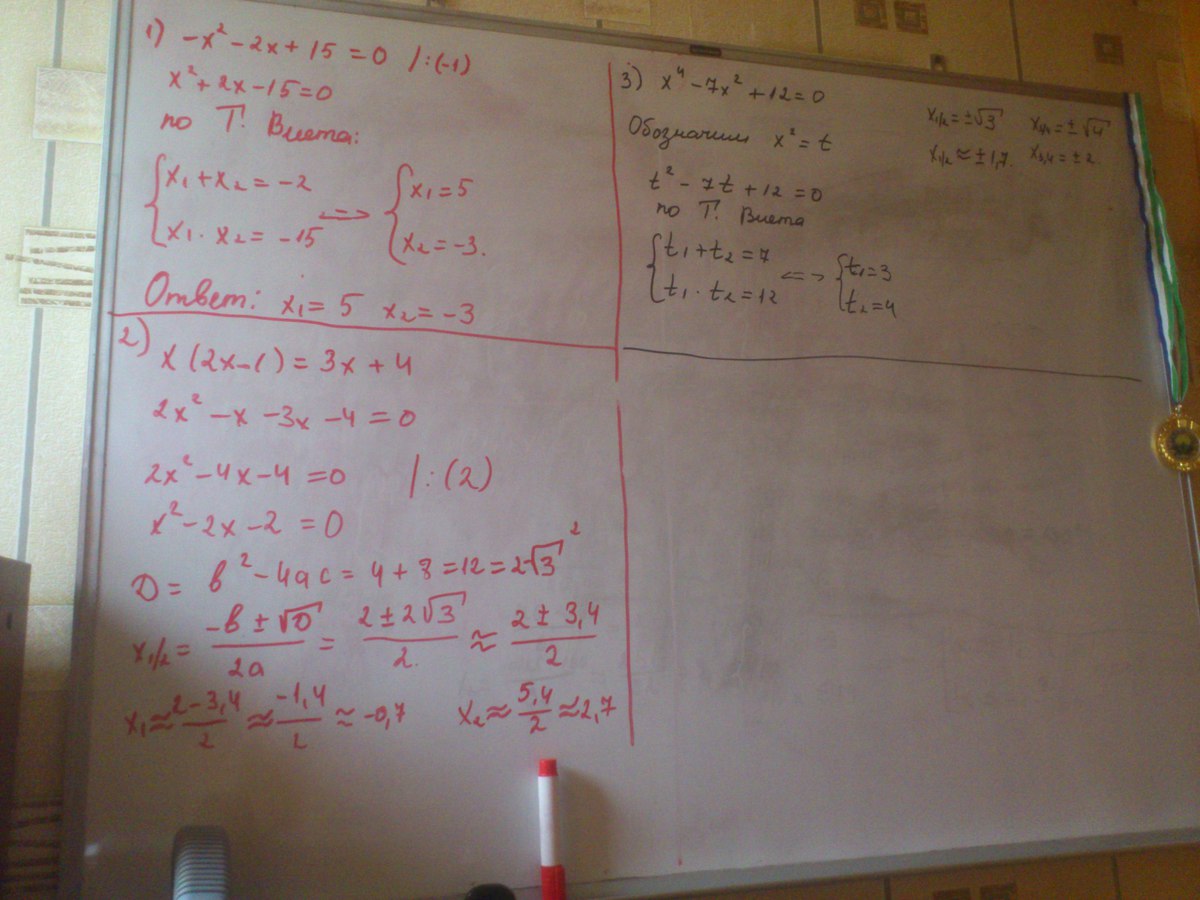 1) -x² - 2x + 15 = 0 /:(-1)
x² + 2x - 15 = 0
по Т. Виета:
{ x₁ + x₂ = -2
x₁ · x₂ = -15 <=> { x₁ = 5
x₂ = -3.
Ответ: x₁ = 5 x₂ = -3
2) x(2x-1) = 3x + 4
2x² - x - 3x - 4 = 0
2x² - 4x - 4 = 0 /:(2)
x² - 2x - 2 = 0
D = b² - 4ac = 4 + 8 = 12 = 2√3²
x₁/₂ = (-b ± √D)/2a = (2 ± 2√3)/2. ≈ (2 ± 3,4)/2
x₁ ≈ (2 - 3,4)/2 ≈ (-1,4)/2 ≈ -0,7 x₂ ≈ 5,4/2 ≈ 2,7
3) x⁴ - 7x² + 12 = 0
Обозначим x² = t
t² - 7t + 12 = 0
по Т. Виета
{ t₁ + t₂ = 7
t₁ · t₂ = 12 <=> { t₁ = 3
t₂ = 4
x₁/₂ = ±√3 x₃/₄ = ±√4
x₁/₂ ≈ ±1,7. x₃,₄ = ±2.